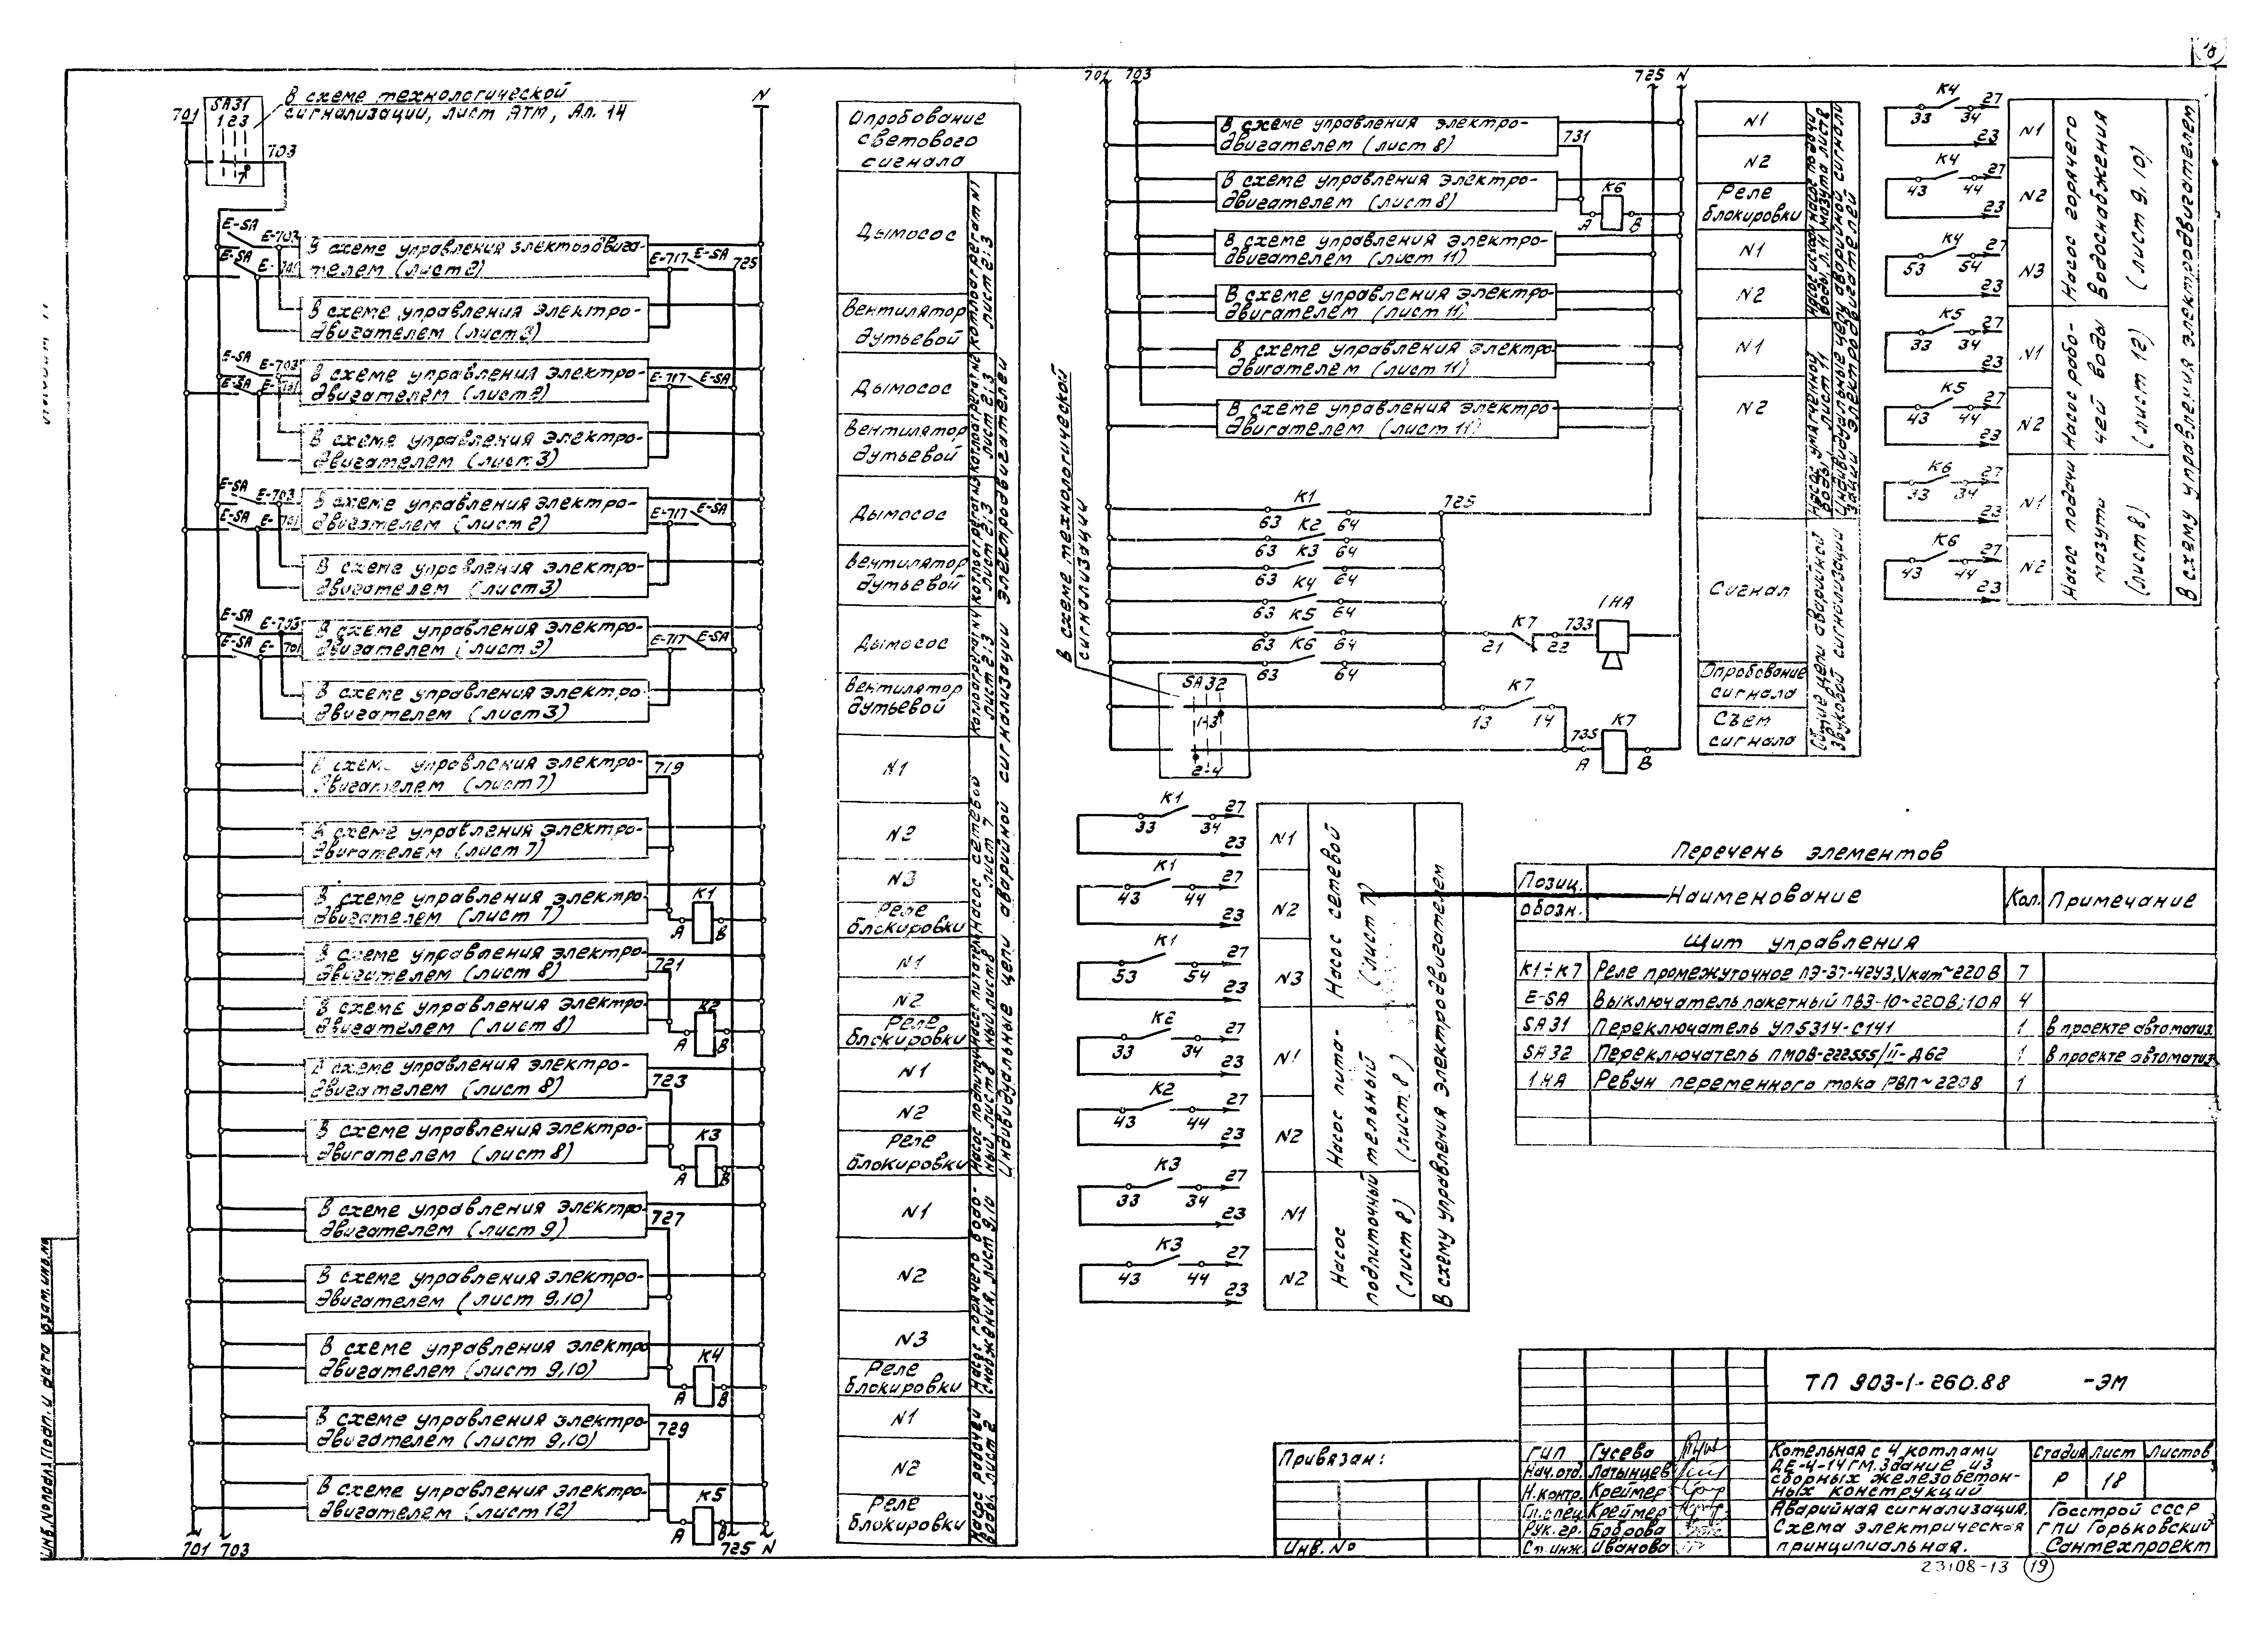 701
SA31
1 2 3
В схеме технологической
сигнализации, лист АТМ, Ал. 14
703
N
Е-SA
Е-703
Е-SA
Е-701
В схеме управления электродвига-
телем (лист 2)
Е-717
Е-SA
725
В схеме управления электро-
двигателем (лист 3)
Е-SA
Е-703
Е-SA
Е-701
В схеме управления электро-
двигателем (лист 2)
Е-717
Е-SA
В схеме управления электро-
двигателем (лист 3)
Е-SA
Е-703
Е-SA
Е-701
В схеме управления электро-
двигателем (лист 2)
Е-717
Е-SA
В схеме управления электро-
двигателем (лист 3)
Е-SA
Е-703
Е-SA
Е-701
В схеме управления электро-
двигателем (лист 2)
Е-717
Е-SA
В схеме управления электро-
двигателем (лист 3)
В схеме управления электро-
двигателем (лист 7)
719
В схеме управления электро-
двигателем (лист 7)
В схеме управления электро-
двигателем (лист 7)
К1
А В
В схеме управления электро-
двигателем (лист 8)
721
В схеме управления электро-
двигателем (лист 8)
К2
А В
В схеме управления электро-
двигателем (лист 8)
723
В схеме управления электро-
двигателем (лист 8)
К3
А В
В схеме управления электро-
двигателем (лист 9)
727
В схеме управления электро-
двигателем (лист 9,10)
В схеме управления электро-
двигателем (лист 9,10)
К4
А В
В схеме управления электро-
двигателем (лист 9,10)
729
В схеме управления электро-
двигателем (лист 12)
К5
А В
701 703
725 N
Опробование
светового
сигнала
Дымосос
Вентилятор
дутьевой
Дымосос
Вентилятор
дутьевой
Дымосос
Вентилятор
дутьевой
Дымосос
Вентилятор
дутьевой
N1
N2
N3
Реле
блокировки
N1
N2
Реле
блокировки
N1
N2
Реле
блокировки
N1
N2
N3
Реле
блокировки
N1
N2
Реле
блокировки
Котлоагрегат N1
лист 2;3
лист 2;3
лист 2;3
лист 2;3
Насос сетевой
лист 7
Насос горячего водо-
снабжения, лист 9,10
Индивидуальные цепи аварийной сигнализации электродвигателей
701 703
725 N
В схеме управления электро-
двигателем (лист 8)
731
В схеме управления электро-
двигателем (лист 8)
К6
А В
В схеме управления электро-
двигателем (лист 11)
В схеме управления электро-
двигателем (лист 11)
В схеме управления электро-
двигателем (лист 11)
В схеме управления электро-
двигателем (лист 11)
В схеме технологической
сигнализации
К1
63 64
725
К2
63 64
К3
63 64
К4
63 64
К5
63 64
К6
63 64
К7
21 22
733
1НА
SA32
1-3
2-4
К7
13 14
735
К7
А В
N1
N2
Реле
блокировки
N1
N2
N1
N2
Сигнал
Опробование
сигнала
Съем
сигнала
Насос умягченной
воды, лист 11
Индивидуальные цепи аварийной сигнали-
зации электродвигателей
Общие цепи аварийной
звуковой сигнализации
К4
33 34
27
23
К4
43 44
27
23
К4
53 54
27
23
К5
33 34
27
23
К5
43 44
27
23
К6
33 34
27
23
К6
43 44
27
23
N1
N2
N3
N1
N2
N1
N2
Насос горячего
водоснабжения
(лист 9,10)
Насос рабо-
чей воды
(лист 12)
Насос подачи
мазута
(лист 8)
В схему управления электродвигателем
К1
33 34
27
23
К1
43 44
27
23
К1
53 54
27
23
К2
33 34
27
23
К2
43 44
27
23
К3
33 34
27
23
К3
43 44
27
23
N1
N2
N3
N1
N2
N1
N2
Насос сетевой
(лист 7)
Насос пита-
тельный
(лист 8)
Насос
подпиточный
(лист 8)
В схему управления электродвигателем
Перечень элементов
Позиц.
обозн.
Наименование
Кол.
Примечание
Щит управления
К1÷К7 Реле промежуточное ПЭ-37-42У3, Vкат~220В 7
Е-SA Выключатель пакетный ПВ3-10~220В; 10А 4
SA31 Переключатель УП5314-С141 1 в проекте автоматиз.
SA32 Переключатель ПМОВ-222555/II-Д62 1 в проекте автоматиз.
1НА Ревун переменного тока РВП~220В 1
ТП 903-1-260.88 -ЭМ
Привязан:
Инв. No
ГИП Гусева
Нач.отд. Латынцев
Н.контр. Креймер
Гл.спец. Креймер
Рук.гр. Боброва
Ст.инж. Иванова
Котельная с 4 котлами
ДЕ-4-14ГМ. Здание из
сборных железобетон-
ных конструкций
Стадия Лист Листов
Р 18
Аварийная сигнализация.
Схема электрическая
принципиальная.
Госстрой СССР
ГПИ Горьковский
Сантехпроект
23108-13 19
Инв.N подл. Подп. и дата Взам.инв.N